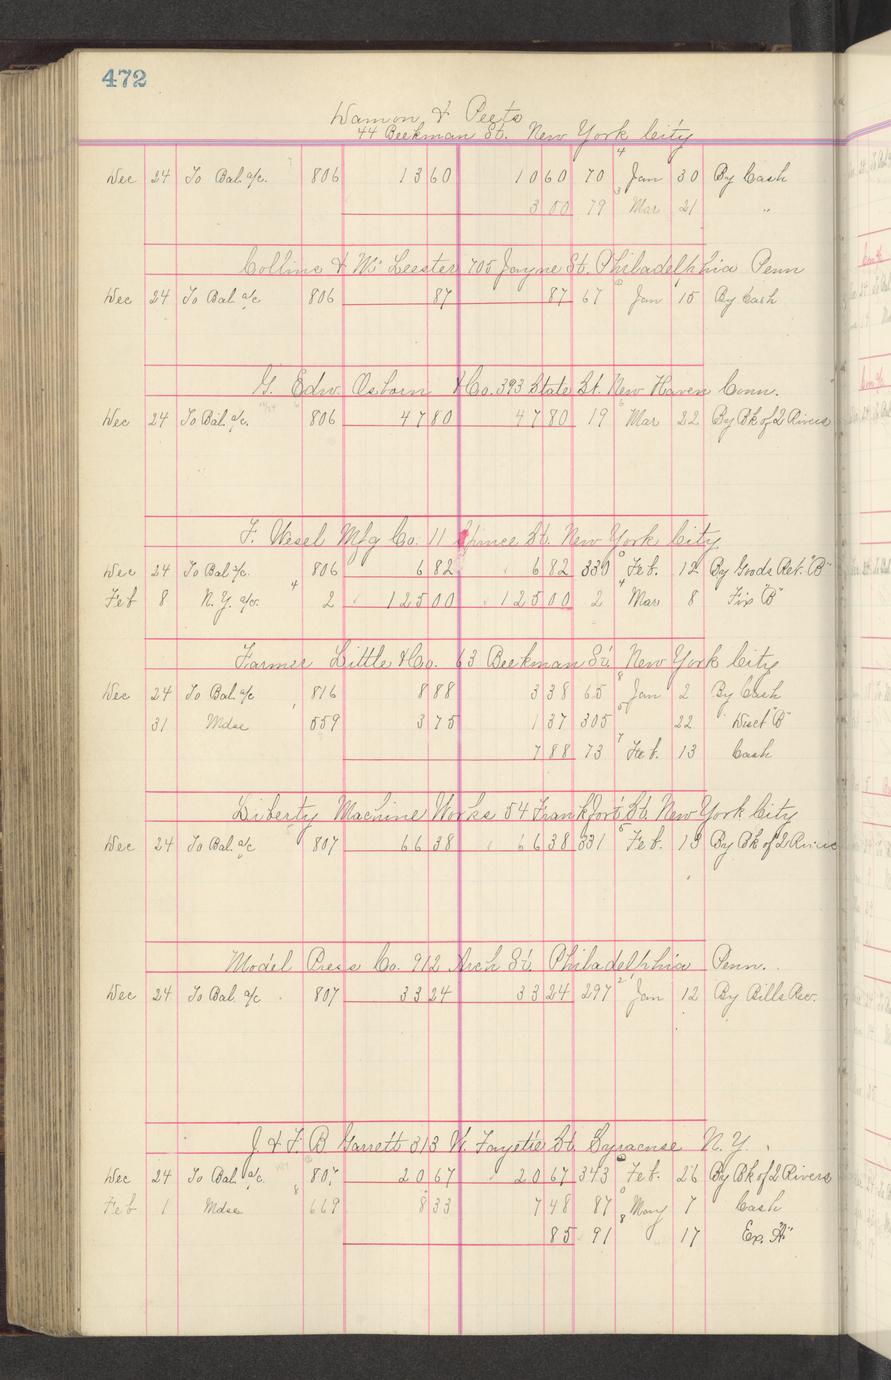 472
Damon & Peets
44 Beekman St. New York City
Dec 24 To Bal. a/c. 806 1360 1060 70 4 Jan 30 By Cash
300 79 3 Mar 21 "
Collins & Mc Leester 705 Jayne St. Philadelphia Penn
Dec 24 To Bal a/c 806 87 87 67 Jan 15 By Cash
G. Edw. Osborn & Co. 393 State St. New Haven Conn.
Dec 24 To Bal. a/c. 806 4780 4780 19 6 Mar 22 By Bk of 2 Rivers
F. Wesel Mfg Co. 11 Spruce St. New York City
Dec 24 To Bal a/c. 806 682 682 330 0 Feb. 12 By Goods Ret. "B"
Feb 8 N. Y. a/c. 4 2 12500 12500 2 4 Mar 8 Fix "B"
Farmer Little & Co. 63 Beekman St. New York City
Dec 24 To Bal a/c 816 888 338 65 8 Jan 2 By Cash
31 Mdse 559 375 137 305 5 22 Disct "B"
788 73 7 Feb. 13 Cash
Liberty Machine Works 54 Frankfort St. New York City
Dec 24 To Bal. a/c 807 6638 6638 331 5 Feb. 13 By Bk of 2 Rivers
Model Press Co. 912 Arch St. Philadelphia Penn.
Dec 24 To Bal. a/c 807 3324 3324 297 2 Jan 12 By Bills Rec.
J & F. B Garrett 313 W. Fayette St. Syracuse N. Y.
Dec 24 To Bal. a/c. 807 2067 2067 343 Feb. 26 By Bk of 2 Rivers
Feb 1 Mdse 8 669 833 748 87 0 May 7 Cash
85 91 8 17 Ex. "A"